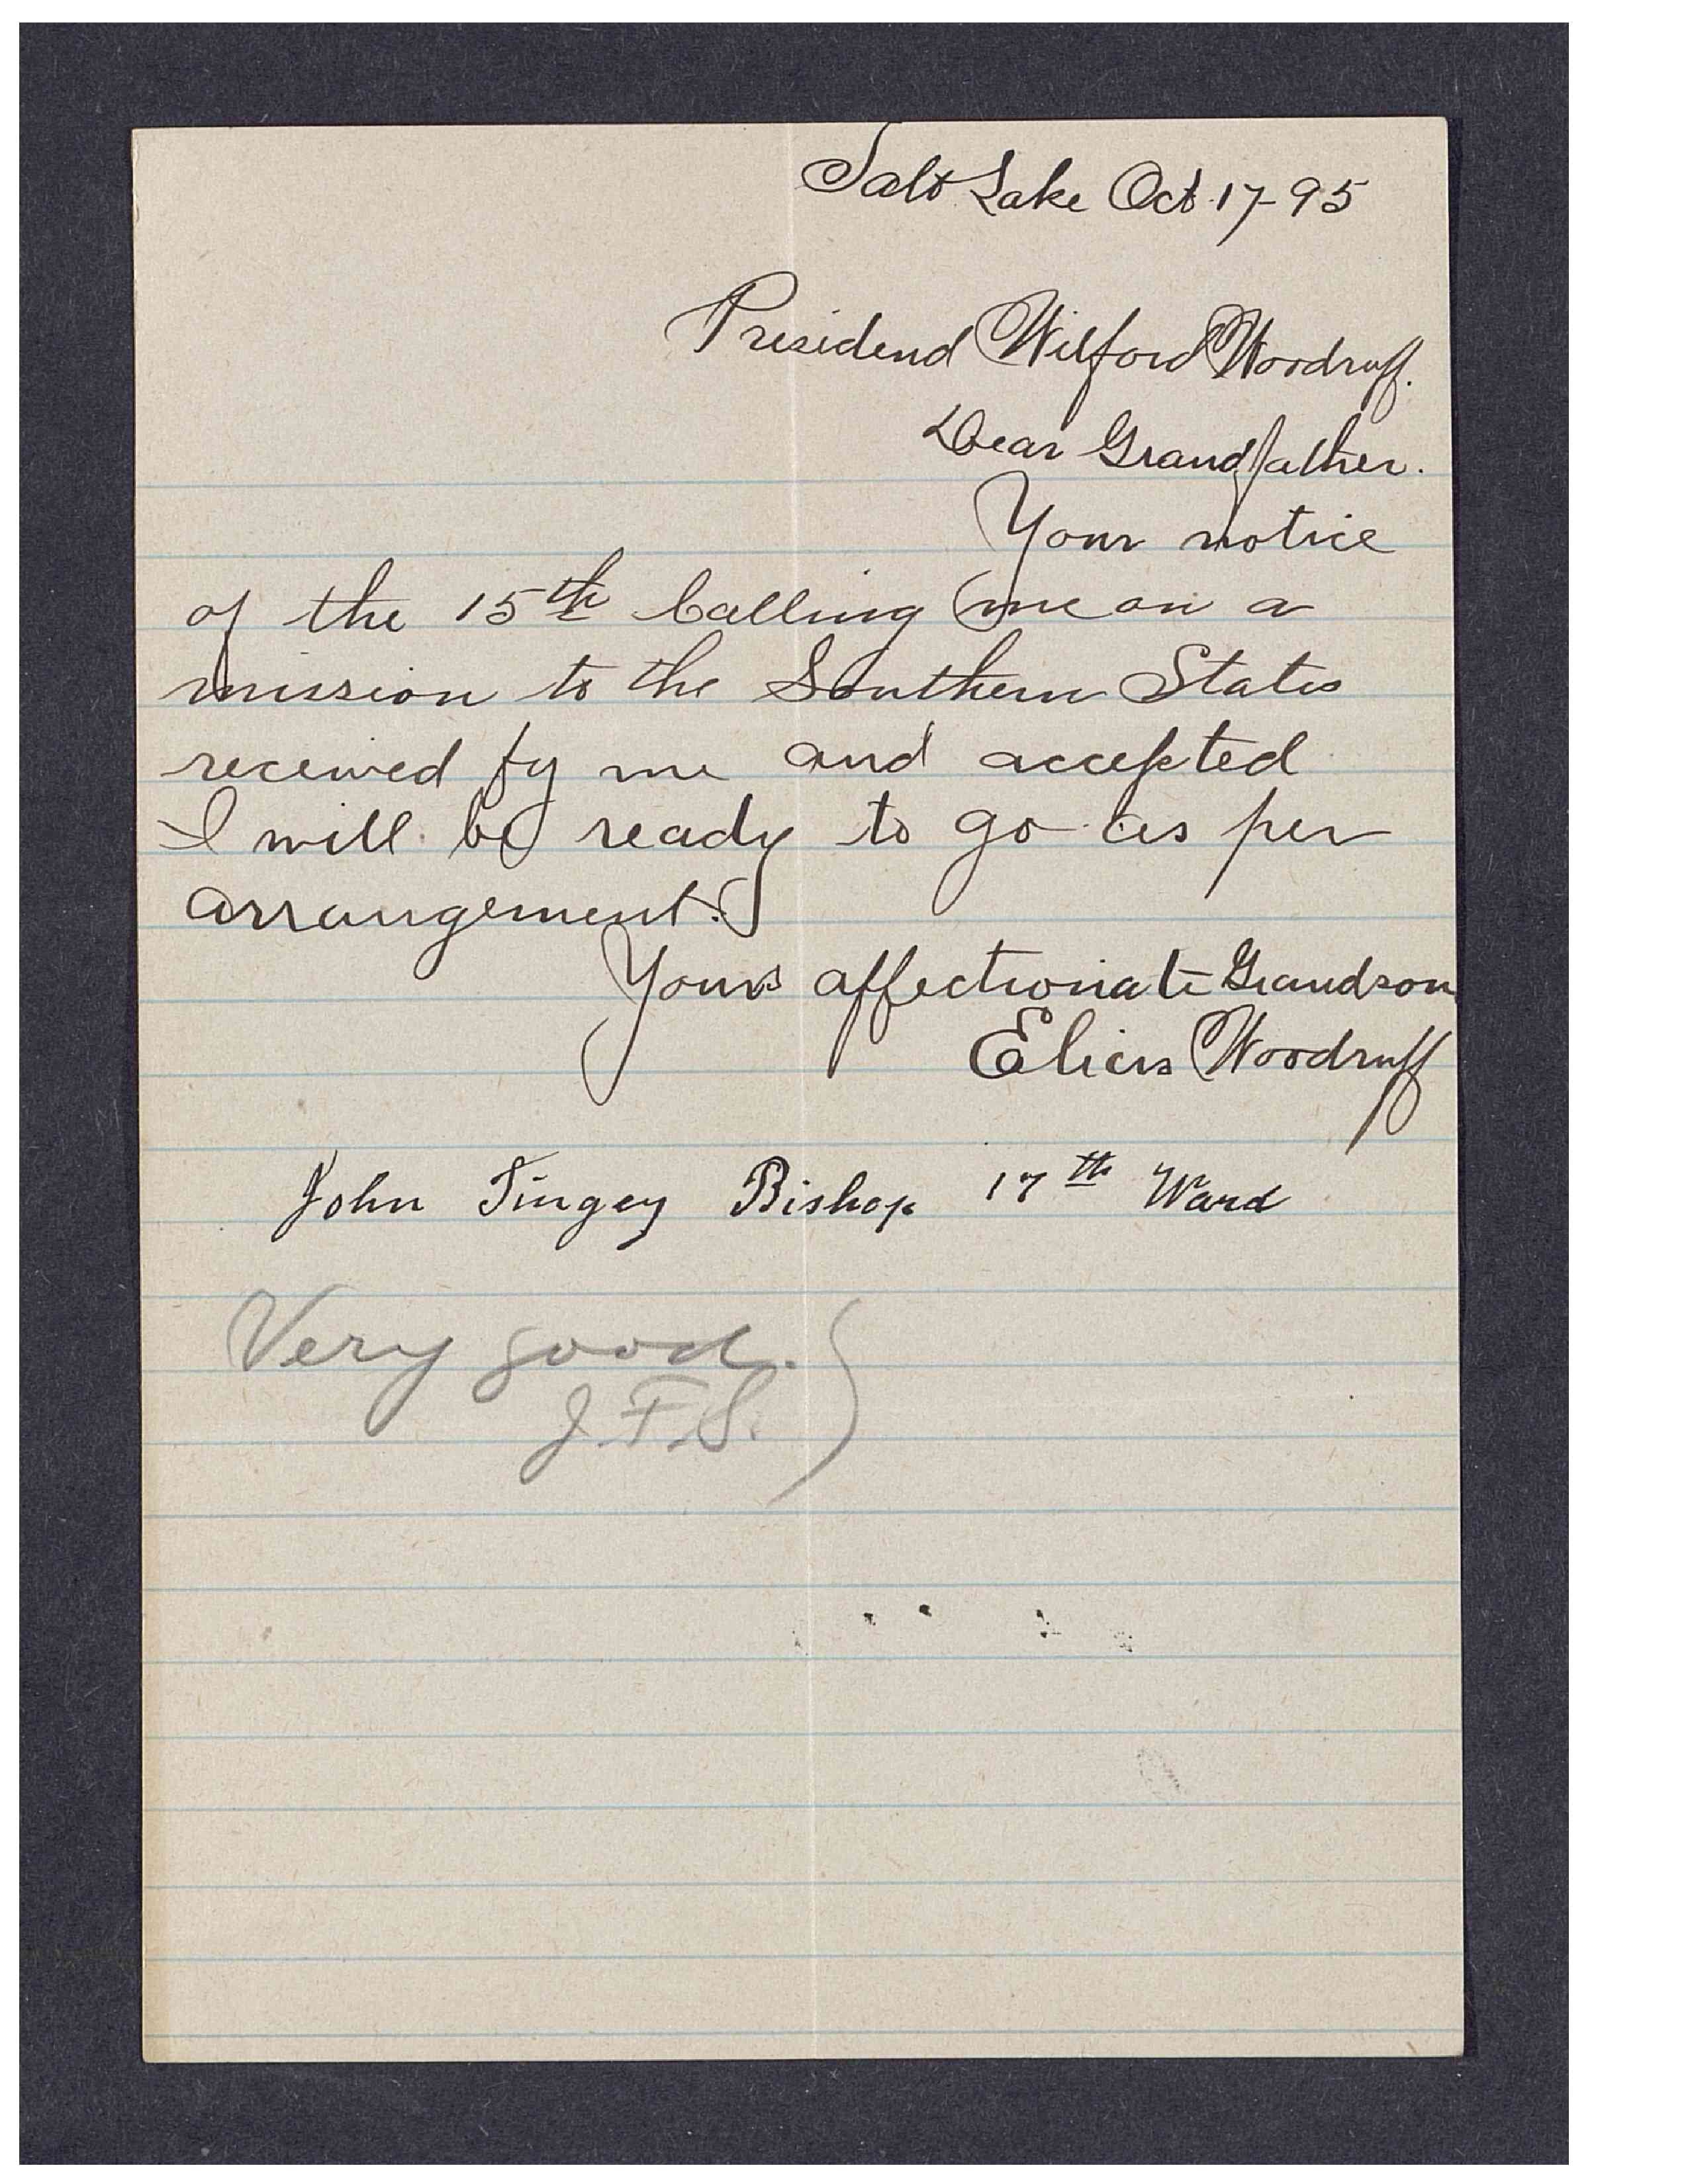 Salt Lake Oct. 17-95
Presidend Wilford Woodruff.
Dear Grandfather.
Your notice
of the 15th Calling me on a
mission to the Southern States
received by me and accepted
I will be ready to go as per
arrangement.
Yours affectionate Grandson
Elias Woodruff
John Tingey Bishop 17th Ward
Very good.
J.F.S.